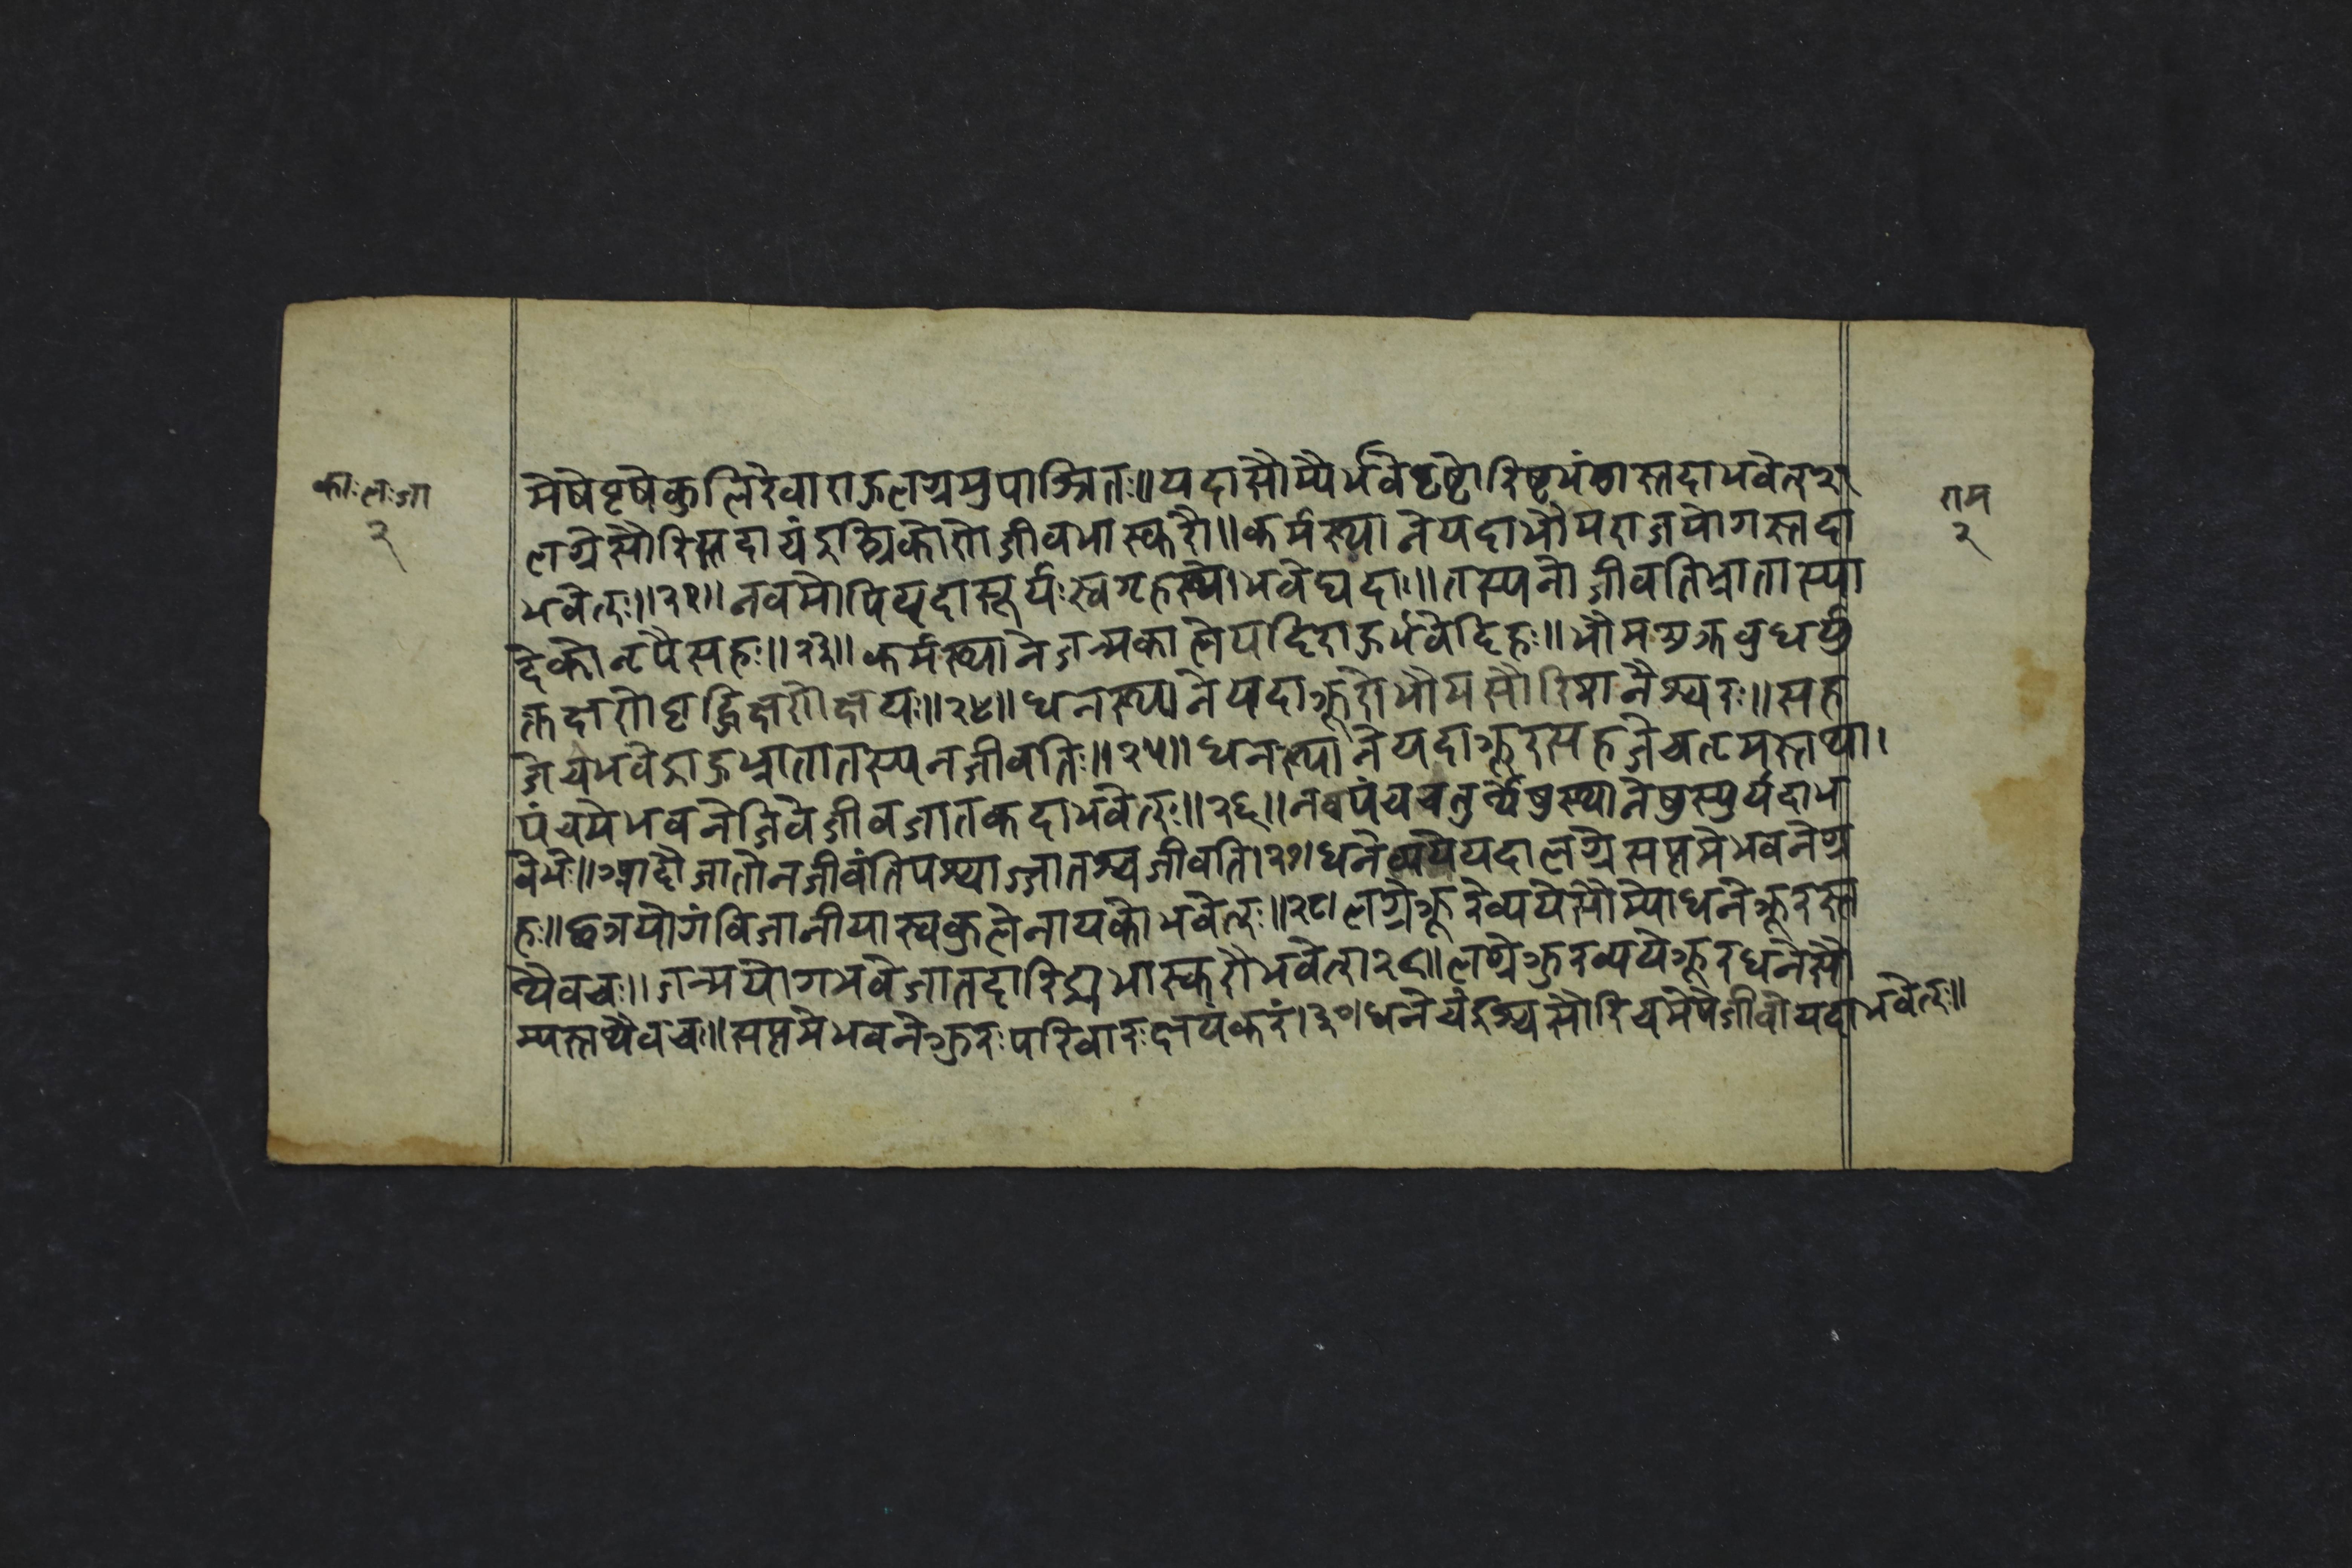 काःलःजा
२
राम
२
मेषेवृषेकुलिरेवाराऊलग्नमुपाश्रितः॥यदासौम्यैर्भवेदृष्टोरिष्टभंगस्तदाभवेत्२१
लग्नेसौरिस्तदाचंद्रत्रिकोणेजीवभास्करौ॥कर्मस्थानेयदाभौमराजयोगस्तदा
भवेत्ः॥२२॥नवमोपियदासूर्यःस्वगृहस्थोभवेद्यदाः॥तस्यनोजीवतिभ्रातास्या
देकोनृपैसहः॥२३॥कर्मस्थानेजन्मकालेयदिराऊर्भवेदिहः॥भौमशुक्रबुधर्यु
क्तक्षणेवृद्धिक्षणेक्षयः॥२४॥धनस्थानेयदाक्रूरोभौमसौरिशनैश्चरः॥सह
जेचभवेद्राऊभ्रातातस्यनजीवतिः॥२५॥धनस्थानेयदाक्रूरसहजेचतमस्तथा।
पंचमेभवनेजिवेजीवजातकदाभवेत्ः॥२६॥नवपंचचतुर्थेषुस्थानेषुस्युर्यदाध
रेमेः॥आदौजातोनजीवंतिपश्चाज्जातश्चजीवति।२७।धनेव्ययेयदालग्नेसप्तमेभवनेग्र
हः॥छत्रयोगंविजानीयास्वकुलेनायकोभवेत्ः॥२८।लग्नेक्रूरेव्ययेसौम्योधनेक्रूरस्त
थैवचः॥जन्मयोगभवेजातदारिद्र्यभास्करोभवेत्।२९॥लग्नेक्रुरव्ययेक्रूरधनेसौ
म्यस्तथैवचः॥सप्तमेभवनेक्रुरःपरिवारःक्षयंकरं।३०।धनेचंद्रश्चसौरिचमेषेजीवोयदाभवेत्ः॥